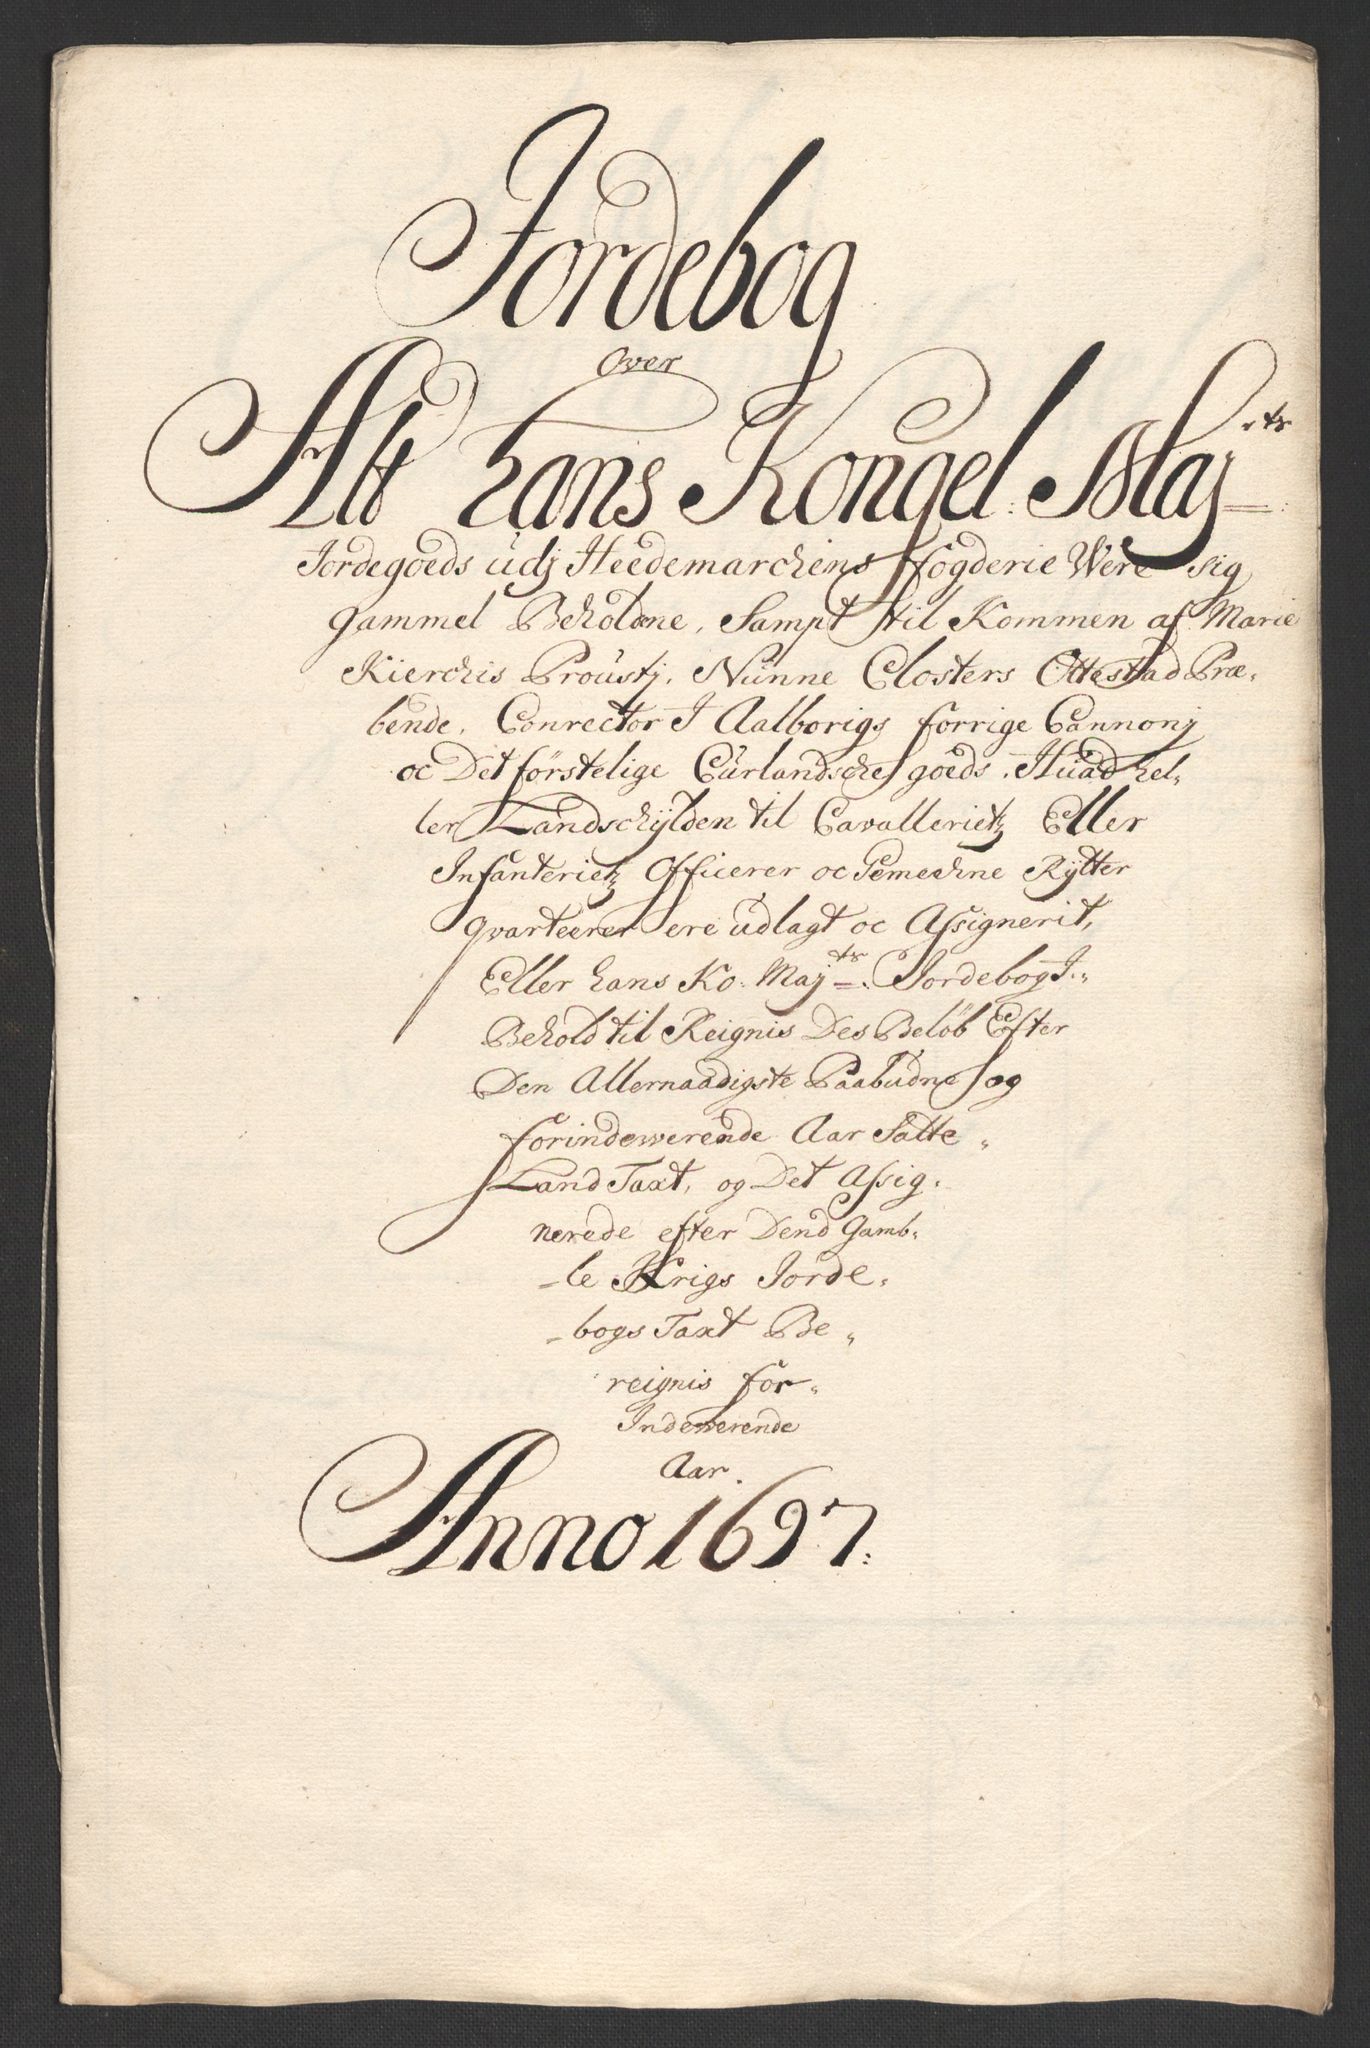 Jordebog
Over
Alt hans Kongel: Maj:ts
Jordegoeds udj Heedemarchens fogderie Were sig
gammel Beholdne, Sampt til Kommen af Marie
Kierchis Proustj, Nunne Closters Ottestad Præ-
bende, Conrector J Aalborigs forrige Cannonj
oc Det förstelige Cúrlandsche goeds, Huad hel-
ler Landschÿlden til Cavallerietz Eller
Infanterietz Officerer oc Gemeehne Rÿtter
qvarteerer ere údlagt oc Assignerit,
Eller hans Ko: Maj:ts Jordebog J
Behold til Reignis Des Belöb Efter
Den Allernaadigste Paabudne og
forindewerende Aar Satte
Land Taxt, og Det Assig-
nerede efter Dend Gamb-
le Krigs Jorde-
bogs Taxt Be-
reignis for-
Indewerende
Aar.
Anno 1697: